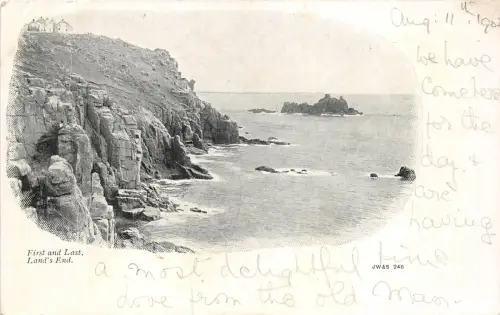 Aug: 11th. 190
We have
Come here
for the
day &
are
having
First and Last,
Land's End.
JW&S 246
a most delightful time
drove from the old Man.